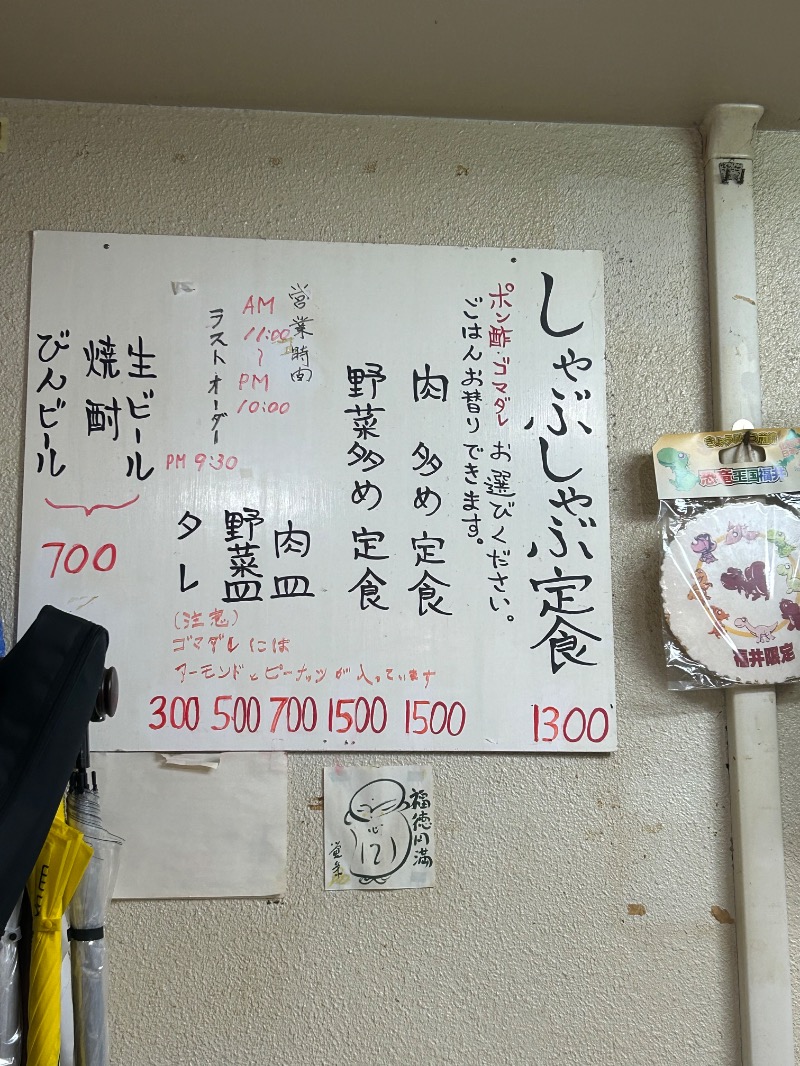 しゃぶしゃぶ定食 1300
ポン酢・ゴマダレ お選びください。
ごはんお替りできます。
肉多め定食 1500
野菜多め定食 1500
営業時間
AM
11:00
〜
PM
10:00
ラストオーダー
PM 9:30
肉皿 700
野菜皿 500
タレ 300
(注意)
ゴマダレには
アーモンドとピーナッツが入っています
生ビール
焼酎
びんビール
700
福徳円満
心
恐竜王国福井
福井限定